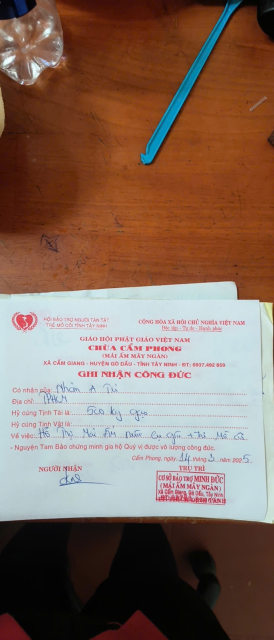 HỘI BẢO TRỢ NGƯỜI TÀN TẬT
TRẺ MỒ CÔI TỈNH TÂY NINH
CỘNG HÒA XÃ HỘI CHỦ NGHĨA VIỆT NAM
Độc lập - Tự do - Hạnh phúc
GIÁO HỘI PHẬT GIÁO VIỆT NAM
CHÙA CẨM PHONG
(MÁI ẤM MÂY NGÀN)
XÃ CẨM GIANG - HUYỆN GÒ DẦU - TỈNH TÂY NINH - ĐT: 0937.492.809
GHI NHẬN CÔNG ĐỨC
Có nhận của: Nhóm A Tài
Địa chỉ: TPHCM
Hỷ cúng Tịnh Tài là: 500 kg gạo
Hỷ cúng Tịnh Vật là:
Về việc: Hỗ Trợ Mái Ấm
- Nguyện Tam Bảo chứng minh gia hộ Quý vị được vô lượng công đức.
Cẩm Phong, ngày 14 tháng 3 năm 2025
NGƯỜI NHẬN
TRỤ TRÌ
CƠ SỞ BẢO TRỢ MINH ĐỨC
(MÁI ẤM MÂY NGÀN)
Xã Cẩm Giang, Gò Dầu, Tây Ninh